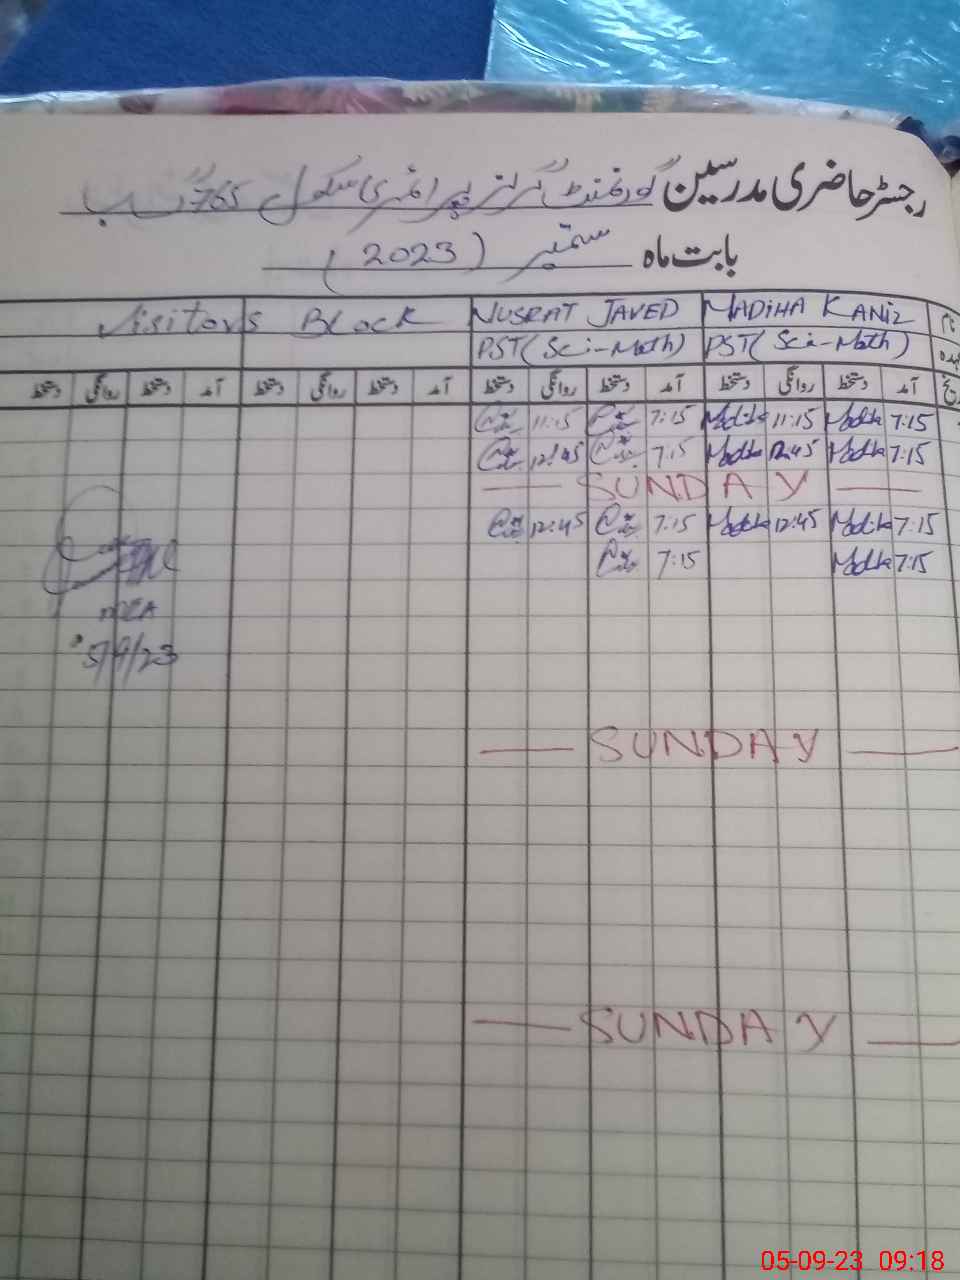 رجسٹر حاضری مدرسین گورنمنٹ گرلز پرائمری سکول 765 گ ب
بابت ماہ ستمبر (2023)
Visitors Block NUSRAT JAVED MADIHA KANIZ
PST(Sci-Math) PST(Sci-Math)
آمد دستخط روانگی دستخط آمد دستخط روانگی دستخط آمد دستخط روانگی دستخط آمد دستخط روانگی دستخط
11:15 7:15 Madiha 11:15 Madiha 7:15
12:45 7:15 Madiha 12:45 Madiha 7:15
SUNDAY
12:45 7:15 Madiha 12:45 Madiha 7:15
7:15 Madiha 7:15
5/9/23
SUNDAY
SUNDAY
05-09-23 09:18